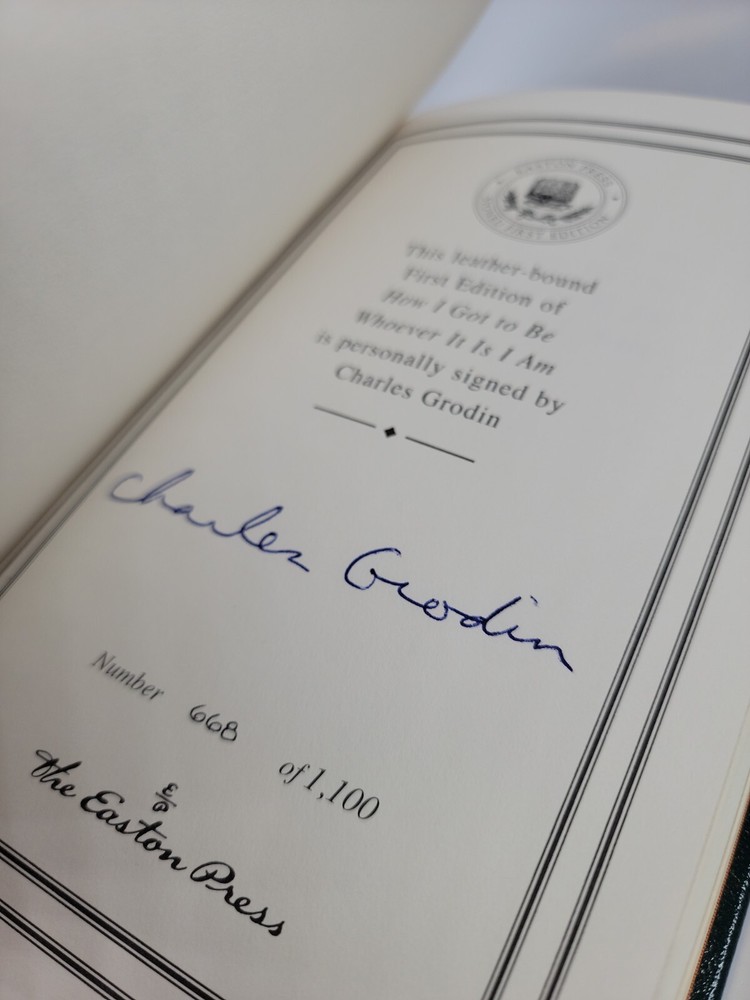 EASTON PRESS
SIGNED FIRST EDITION
This leather-bound
First Edition of
How I Got to Be
Whoever It Is I Am
is personally signed by
Charles Grodin
Charles Grodin
Number 668 of 1,100
E/P
The Easton Press